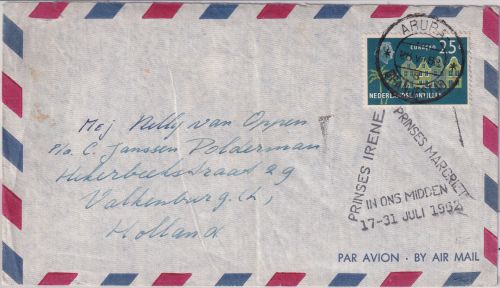 ARUBA
CURAÇAO 25c
NEDERLANDSE ANTILLEN
Mej Nelly van Oppen
p/a C. Janssen Polderman
Hekerbeekstraat 29
Valkenburg (L,
Holland
PRINSES IRENE
PRINSES MARGRIET
IN ONS MIDDEN
17-31 JULI 1962
PAR AVION · BY AIR MAIL